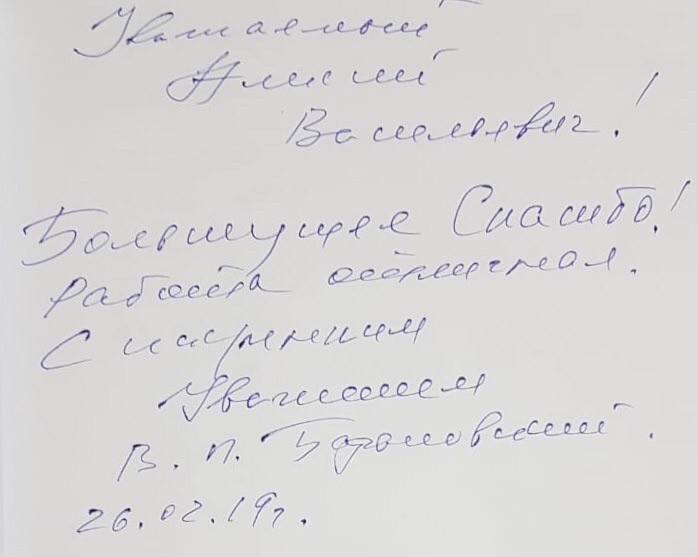 Уважаемый
Алексей
Васильевич!
Большущее Спасибо!
Работа отличная.
С искренним
Уважением
В. П. Барановский.
26.02.19г.